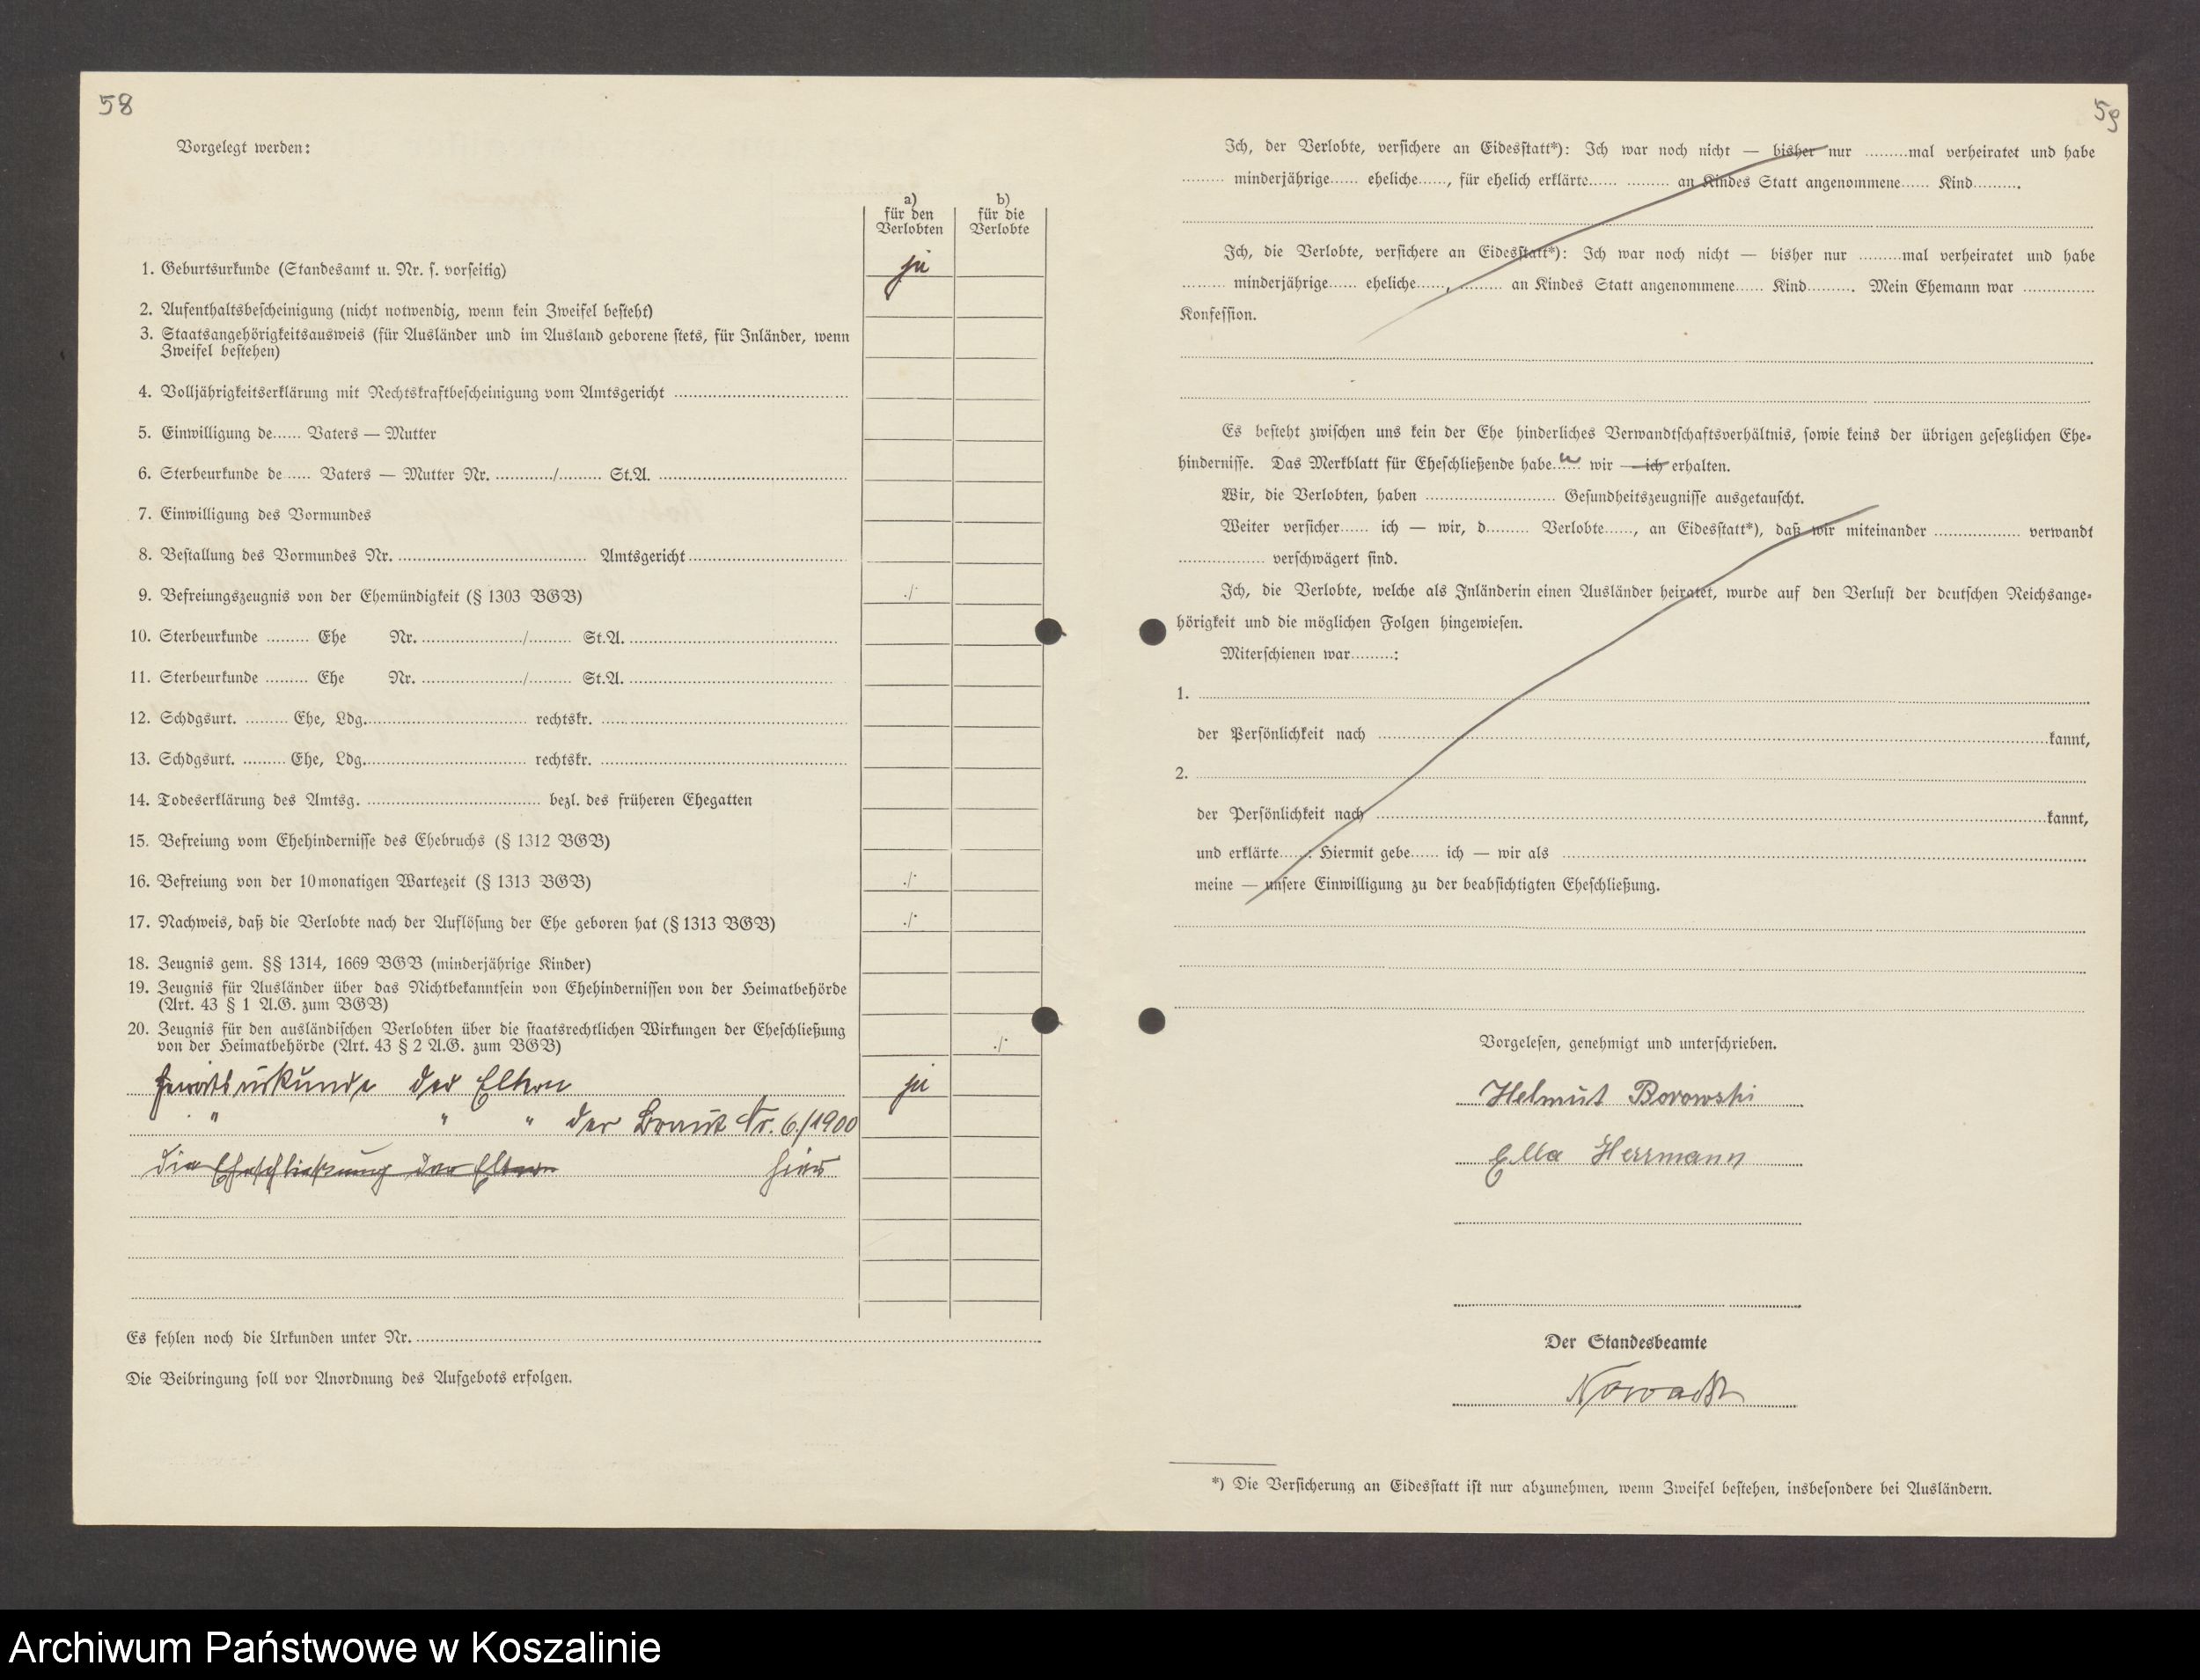 58
Vorgelegt werden:
a)
für den
Verlobten
b)
für die
Verlobte
1. Geburtsurkunde (Standesamt u. Nr. s. vorseitig) ja
2. Aufenthaltsbescheinigung (nicht notwendig, wenn kein Zweifel besteht)
3. Staatsangehörigkeitsausweis (für Ausländer und im Ausland geborene stets, für Inländer, wenn
Zweifel bestehen)
4. Volljährigkeitserklärung mit Rechtskraftbescheinigung vom Amtsgericht ........
5. Einwilligung de...... Vaters — Mutter
6. Sterbeurkunde de...... Vaters — Mutter Nr. ............/......... St.A. ........
7. Einwilligung des Vormundes
8. Bestallung des Vormundes Nr. ........ Amtsgericht ........
9. Befreiungszeugnis von der Ehemündigkeit (§ 1303 BGB) ./.
10. Sterbeurkunde ......... Ehe Nr. ......../......... St.A. ........
11. Sterbeurkunde ......... Ehe Nr. ......../......... St.A. ........
12. Schdgsurt. ......... Ehe, Ldg. ........ rechtskr. ........
13. Schdgsurt. ......... Ehe, Ldg. ........ rechtskr. ........
14. Todeserklärung des Amtsg. ........ bezl. des früheren Ehegatten
15. Befreiung vom Ehehindernisse des Ehebruchs (§ 1312 BGB)
16. Befreiung von der 10monatigen Wartezeit (§ 1313 BGB) ./.
17. Nachweis, daß die Verlobte nach der Auflösung der Ehe geboren hat (§ 1313 BGB) ./.
18. Zeugnis gem. §§ 1314, 1669 BGB (minderjährige Kinder)
19. Zeugnis für Ausländer über das Nichtbekanntsein von Ehehindernissen von der Heimatbehörde
(Art. 43 § 1 A.G. zum BGB)
20. Zeugnis für den ausländischen Verlobten über die staatsrechtlichen Wirkungen der Eheschließung
von der Heimatbehörde (Art. 43 § 2 A.G. zum BGB) ./.
Heiratsurkunde der Eltern ja
" " " der Braut Nr. 6/1900
die Eheschließung der Eltern hier
Es fehlen noch die Urkunden unter Nr. ........
Die Beibringung soll vor Anordnung des Aufgebots erfolgen.
59
Ich, der Verlobte, versichere an Eidesstatt*): Ich war noch nicht — bisher nur .........mal verheiratet und habe
......... minderjährige...... eheliche......, für ehelich erklärte...... ......... an Kindes Statt angenommene...... Kind..........
Ich, die Verlobte, versichere an Eidesstatt*): Ich war noch nicht — bisher nur .........mal verheiratet und habe
......... minderjährige...... eheliche......, ......... an Kindes Statt angenommene...... Kind.......... Mein Ehemann war ...............
Konfession.
Es besteht zwischen uns kein der Ehe hinderliches Verwandtschaftsverhältnis, sowie keins der übrigen gesetzlichen Ehe-
hindernisse. Das Merkblatt für Eheschließende habe n wir — ich erhalten.
Wir, die Verlobten, haben ........ Gesundheitszeugnisse ausgetauscht.
Weiter versicher...... ich — wir, d......... Verlobte......, an Eidesstatt*), daß wir miteinander .................. verwandt
.................. verschwägert sind.
Ich, die Verlobte, welche als Inländerin einen Ausländer heiratet, wurde auf den Verlust der deutschen Reichsange-
hörigkeit und die möglichen Folgen hingewiesen.
Miterschienen war.........:
1. ........
der Persönlichkeit nach ........kannt,
2. ........
der Persönlichkeit nach ........kannt,
und erklärte......: Hiermit gebe...... ich — wir als ........
meine — unsere Einwilligung zu der beabsichtigten Eheschließung.
Vorgelesen, genehmigt und unterschrieben.
Helmut Borowski
Ella Herrmann
Der Standesbeamte
*) Die Versicherung an Eidesstatt ist nur abzunehmen, wenn Zweifel bestehen, insbesondere bei Ausländern.
Archiwum Państwowe w Koszalinie